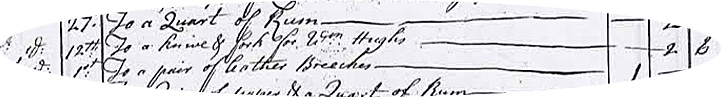 27. To a Quart of Rum
12th To a knive & fork for Wm Hughs 2
1st To a pair of leather Breeches 1
& a Quart of Rum